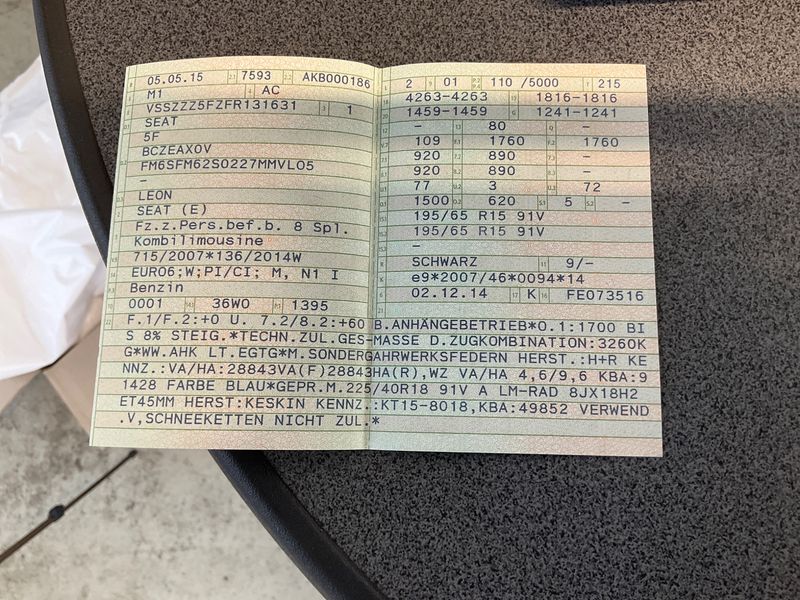 05.05.15 7593 AKB000186
M1 AC
VSSZZZ5FZFR131631 1
SEAT
5F
BCZEAX0V
FM6SFM62S0227MMVL05
–
LEON
SEAT (E)
Fz.z.Pers.bef.b. 8 Spl.
Kombilimousine
715/2007*136/2014W
EURO6;W;PI/CI; M, N1 I
Benzin
0001 36W0 1395
2 01 110 /5000 215
4263-4263 1816-1816
1459-1459 1241-1241
– 80 –
109 1760 1760
920 890 –
920 890 –
77 3 72
1500 620 5 –
195/65 R15 91V
195/65 R15 91V
–
SCHWARZ 9/–
e9*2007/46*0094*14
02.12.14 K FE073516
F.1/F.2:+0 U. 7.2/8.2:+60 B.ANHÄNGEBETRIEB*O.1:1700 BI
S 8% STEIG.*TECHN.ZUL.GES-MASSE D.ZUGKOMBINATION:3260K
G*WW.AHK LT.EGTG*M.SONDERGAHRWERKSFEDERN HERST.:H+R KE
NNZ.:VA/HA:28843VA(F)28843HA(R),WZ VA/HA 4,6/9,6 KBA:9
1428 FARBE BLAU*GEPR.M.225/40R18 91V A LM-RAD 8JX18H2
ET45MM HERST:KESKIN KENNZ.:KT15-8018,KBA:49852 VERWEND
.V,SCHNEEKETTEN NICHT ZUL.*